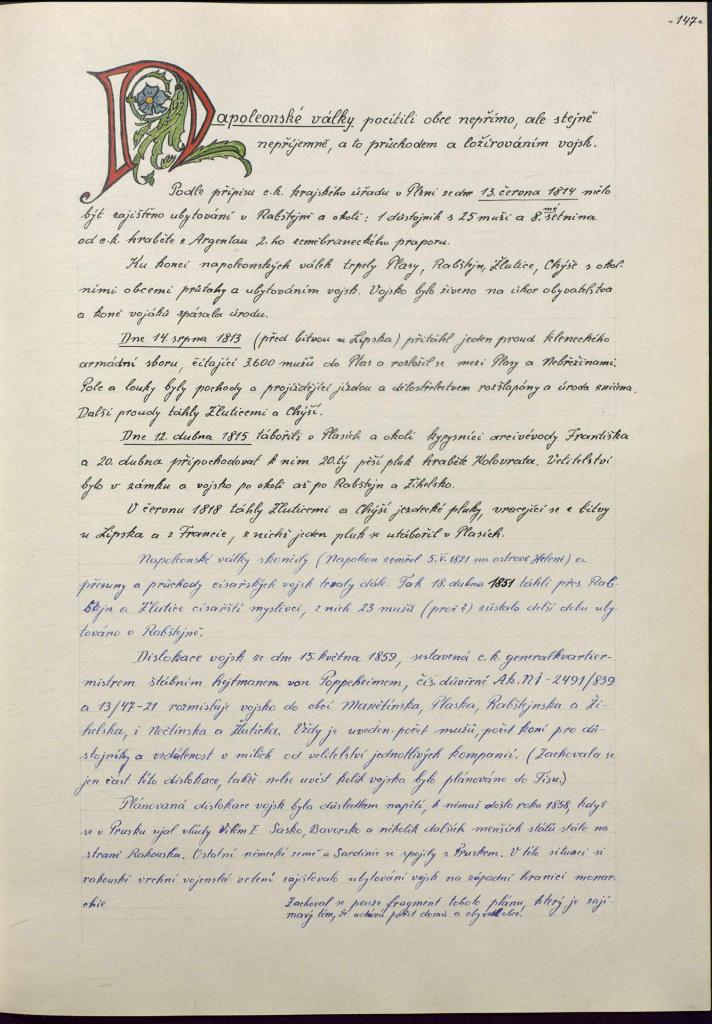 -147-
Napoleonské války pocítili obce nepřímo, ale stejně
nepříjemně, a to průchodem a ložírováním vojsk.
Podle přípisu c.k. krajského úřadu v Plzni ze dne 13. června 1814 mělo
být zajištěno ubytování v Rabštejně a okolí: 1 důstojník s 25 muži a 8. setnina
od c.k. hraběte z Argentau 2.ho zeměbraneckého praporu.
Ku konci napoleonských válek trpely Plasy, Rabštejn, Žlutice, Chýše s okol-
ními obcemi průtahy a ubytováním vojsk. Vojsko bylo živeno na úkor obyvatelstva
a koně vojáků spásala úrodu.
Dne 14. srpna 1813 (před bitvou u Lipska) přitáhl jeden proud kleneckého
armádní sboru, čítající 3.600 mužů do Plas a rozložil se mezi Plasy a Nebřežinami.
Pole a louky byly pochody a projíždějící jízdou a dělostřelectvem rozšlapány a úroda zničena.
Další proudy táhly Žluticemi a Chýší.
Dne 12. dubna 1815 tábořili v Plasích a okolí kyrysníci arcivévody Františka
a 20. dubna připochodoval k nim 20.tý pěší pluk hraběte Kolovrata. Velitelství
bylo v zámku a vojsko po okolí až po Rabštejn a Žihelsko.
V červnu 1818 táhly Žluticemi a Chýší jezdecké pluky, vracející se z bitvy
u Lipska a z Francie, z nichž jeden pluk se utábořil v Plasích.
Napoleonské války skončily (Napoleon zemřel 5.V.1821 na ostrově Heleně) a
přesuny a průchody císařských vojsk trvaly dál. Tak 18. dubna 1851 táhli přes Rab-
štejn a Žlutice císařští myslivci, z nich 23 mužů (proč?) zůstalo delší dobu uby-
továno v Rabštejně.
Dislokace vojsk ze dne 15. května 1859, sestavená c.k. generalkvartier-
mistrem štábním hejtmanem von Poppenheimem, čís. důvěrné Ab. NI-2491/839
a 13/47-21 rozmisťuje vojsko do obcí Manětínska, Plaska, Rabštejnska a Ži-
helska, i Nečtinska a Žluticka. Vždy je uveden počet mužů, počet koní pro dů-
stojníky a vzdálenost v mílích od velitelství jednotlivých kompanií. (Zachovala se
jen část této dislokace, takže nelze uvést kolik vojska bylo plánováno do Tisu.)
Plánovaná dislokace vojsk byla důsledkem napětí, k němuž došlo roku 1858, když
se v Prusku ujal vlády Vilém I. Sasko, Bavorsko a několik dalších menších států stálo na
straně Rakouska. Ostatní německé země a Sardinie se spojily s Pruskem. V této situaci si
rakouské vrchní vojenské velení zajišťovalo ubytování vojsk na západní hranici monar-
chie.
Zachoval se pouze fragment tohoto plánu, který je zají-
mavý tím, že udává počet domů a obyvatel obcí.